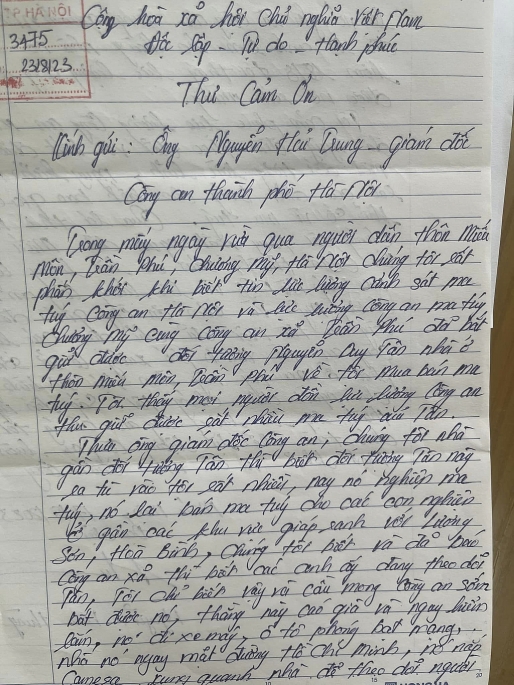 3475
23/8/23
Cộng hoà xã hội Chủ nghĩa Việt Nam
Độc lập - Tự do - Hạnh phúc
Thư Cảm Ơn
Kính gửi: Ông Nguyễn Hải Trung - giám đốc
Công an thành phố Hà Nội
Trong mấy ngày vừa qua người dân thôn Miếu
Môn, Trần Phú, Chương Mỹ, Hà Nội chúng tôi rất
phấn khởi khi biết tin lực lượng cảnh sát ma
tuý công an Hà Nội và lực lượng công an ma tuý
Chương Mỹ cùng công an xã Trần Phú đã bắt
giữ được đối tượng Nguyễn Duy Tân nhà ở
thôn miếu môn, Trần Phú về tội mua bán ma
tuý. Tôi thấy mọi người đồn lực lượng công an
thu giữ được rất nhiều ma tuý của Tân.
Thưa ông giám đốc công an, chúng tôi nhà
gần đối tượng Tân thì biết đối tượng Tân này
ra tù vào tội rất nhiều, nay nó nghiện ma
tuý, nó lại bán ma tuý cho các con nghiện
ở gần các khu vực giáp ranh với Lương
Sơn, Hoà Bình, chúng tôi biết và đã báo
công an xã thì biết các anh ấy đang theo dõi
Tân, Tôi chỉ biết vậy và cầu mong công an sớm
bắt được nó, thằng này cáo già và nguy hiểm
lắm, nó đi xe máy, ô tô phóng bạt mạng,
nhà nó ngay mặt đường Hồ Chí Minh, nó nắp
Camera xung quanh nhà để theo dõi người